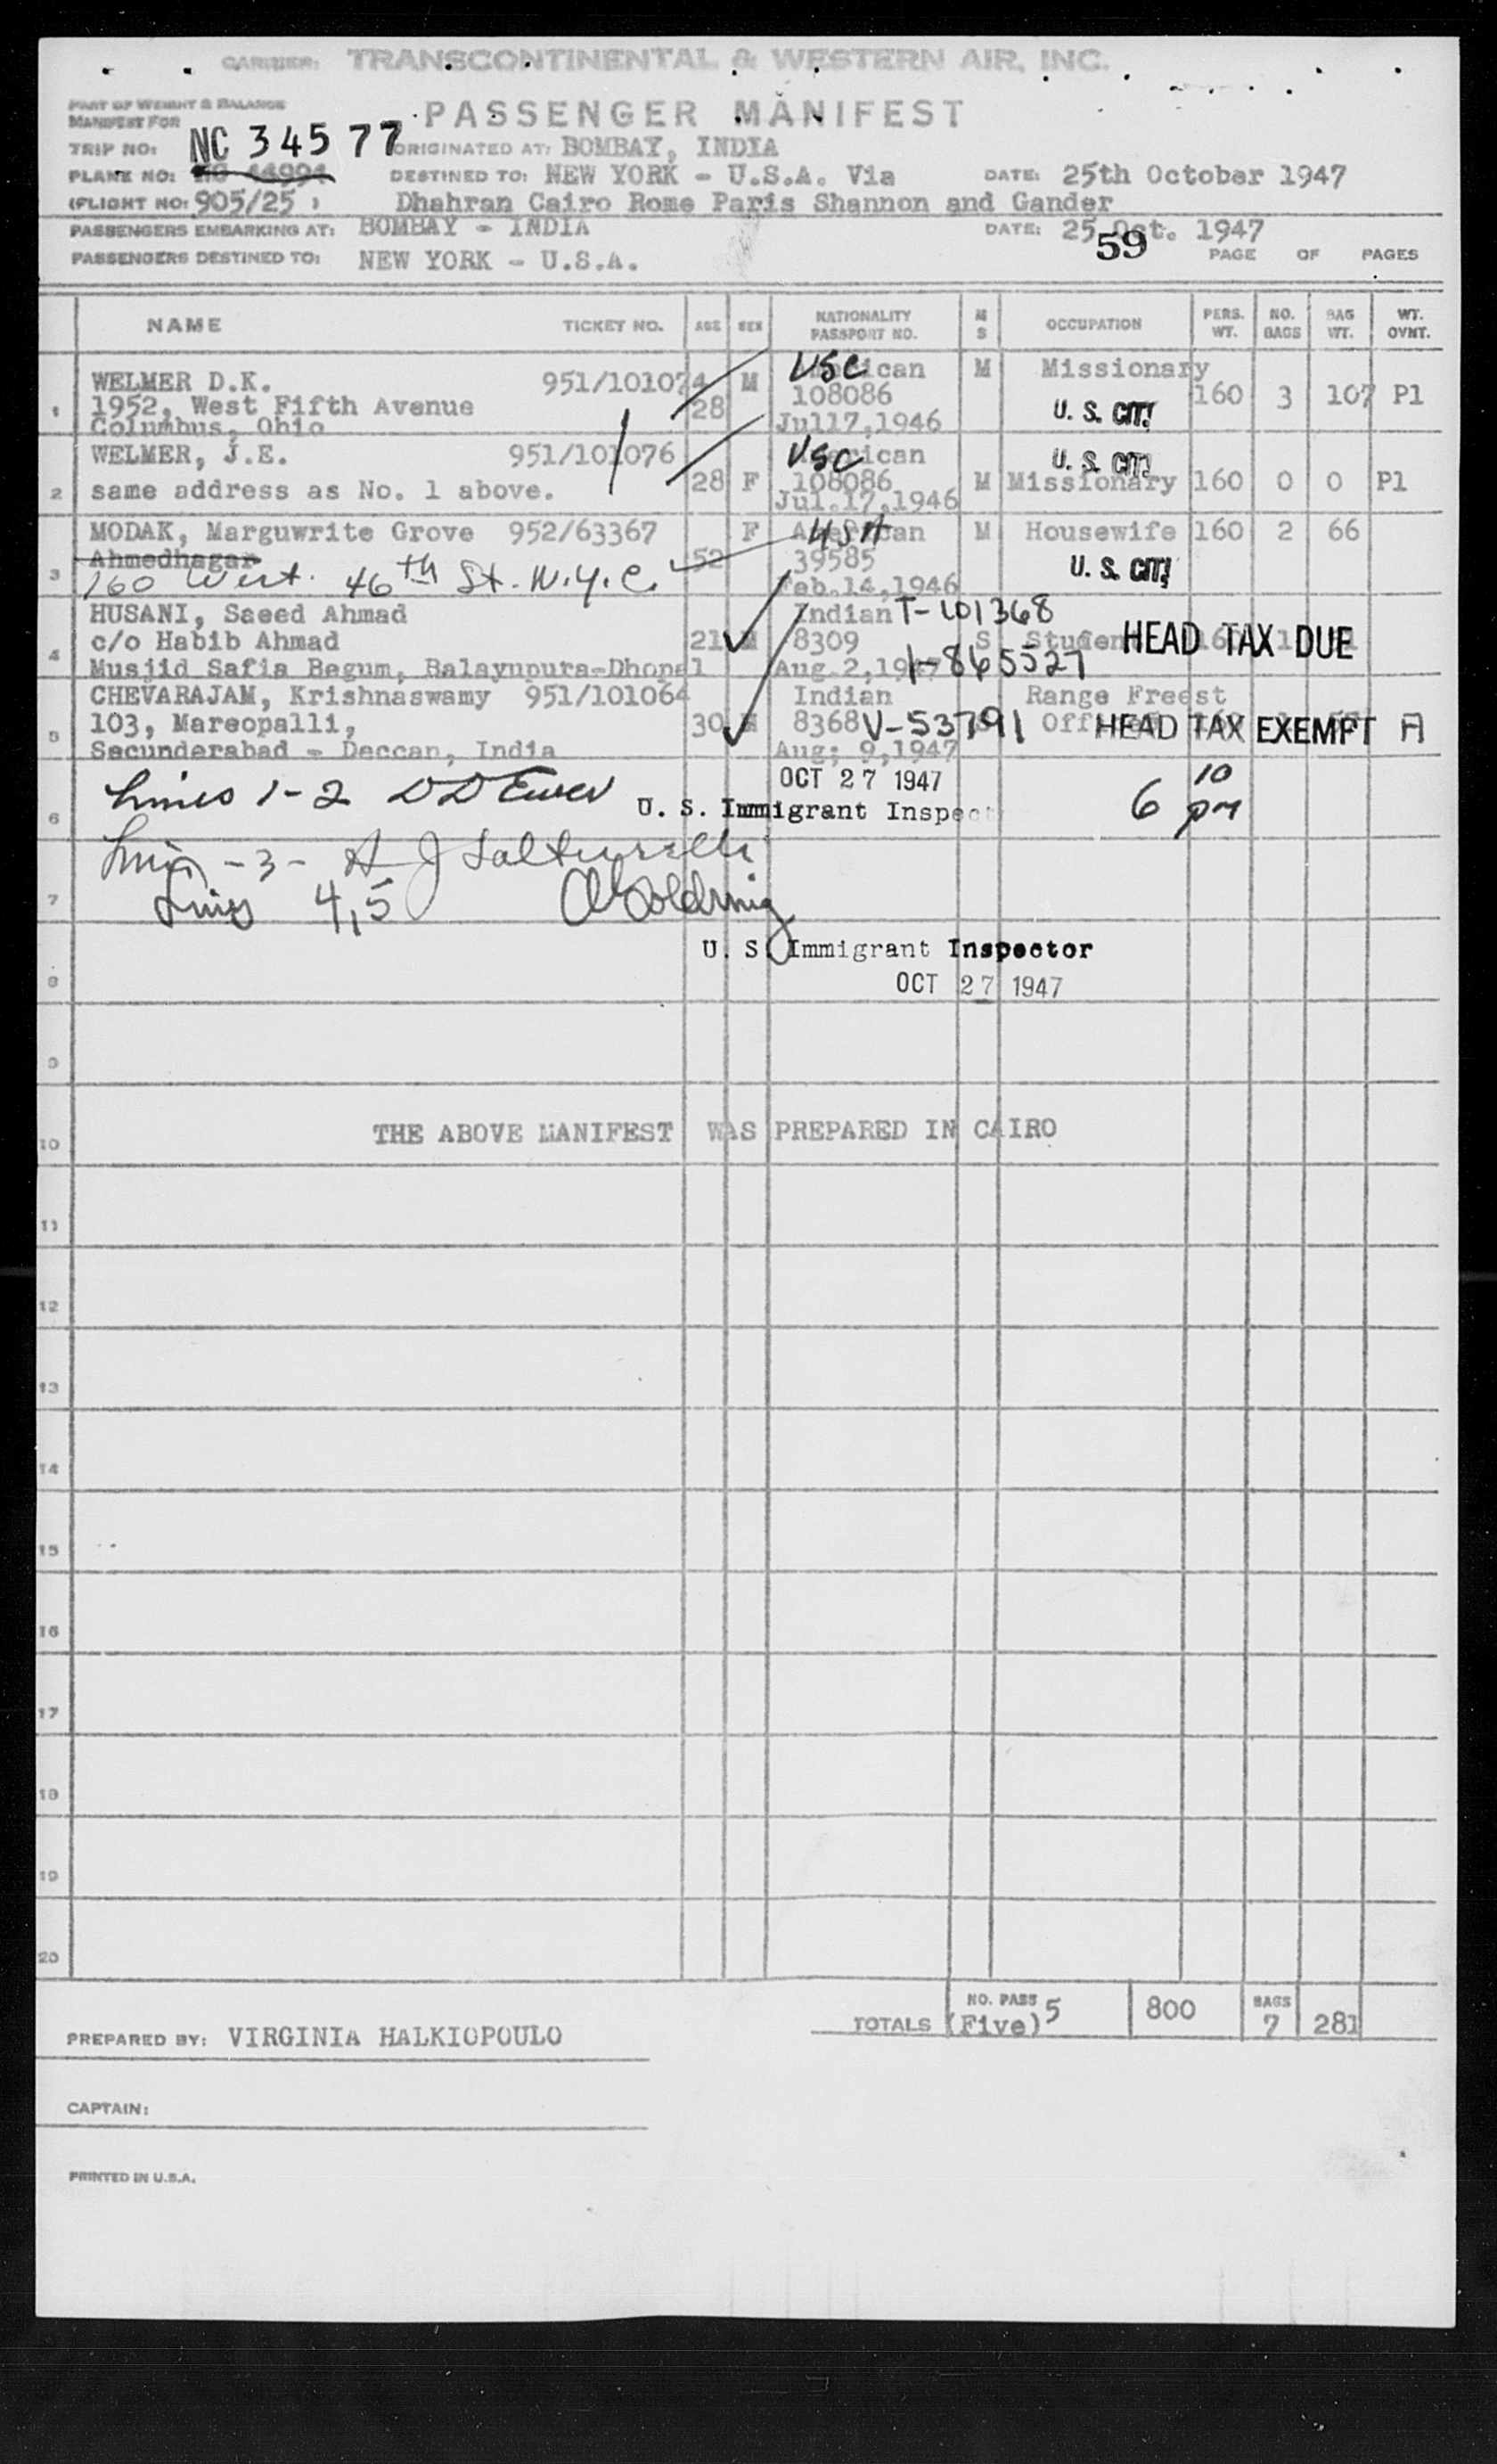 CARRIER: TRANSCONTINENTAL & WESTERN AIR, INC.
PART OF WEIGHT & BALANCE
MANIFEST FOR
PASSENGER MANIFEST
TRIP NO: NC 34577 ORIGINATED AT: BOMBAY, INDIA
PLANE NO: DESTINED TO: NEW YORK - U.S.A. Via DATE: 25th October 1947
(FLIGHT NO: 905/25 ) Dhahran Cairo Rome Paris Shannon and Gander
PASSENGERS EMBARKING AT: BOMBAY - INDIA DATE: 25 Oct. 1947
59
PASSENGERS DESTINED TO: NEW YORK - U.S.A. PAGE OF PAGES
NAME TICKET NO. AGE SEX NATIONALITY PASSPORT NO. M S OCCUPATION PERS. WT. NO. BAGS BAG WT. WT. OVNT.
WELMER D.K. 951/101074 M USC American M Missionary
1 1952, West Fifth Avenue 28 108086 U. S. CIT. 160 3 107 Pl
Columbus, Ohio Jul17,1946
WELMER, J.E. 951/101076 USC American U. S. CIT.
2 same address as No. 1 above. 28 F 108086 M Missionary 160 0 0 Pl
Jul.17,1946
MODAK, Marguwrite Grove 952/63367 F USA American M Housewife 160 2 66
Ahmednagar 52 39585 U. S. CIT.
3 160 West. 46th St. N.Y.C. Feb.14,1946
HUSANI, Saeed Ahmad Indian T-101368
4 c/o Habib Ahmad 21 M 8309 S Student HEAD TAX DUE 160 1
Musjid Safia Begum, Balayupura-Dhopal Aug.2,1947 1-865527
CHEVARAJAM, Krishnaswamy 951/101064 Indian Range Freest
5 103, Mareopalli, 30 M 8368 V-53791 Officer HEAD TAX EXEMPT A
Secunderabad - Deccan, India Aug; 9,1947
OCT 27 1947
6 Lines 1-2 U. S. Immigrant Inspect 6 10 pm
Line -3- A J
7 Lines 4,5
U. S. Immigrant Inspector
8 OCT 27 1947
9
10 THE ABOVE MANIFEST WAS PREPARED IN CAIRO
11
12
13
14
15
16
17
18
19
20
TOTALS NO. PASS 5 (Five) 800 BAGS 7 281
PREPARED BY: VIRGINIA HALKIOPOULO
CAPTAIN:
PRINTED IN U.S.A.